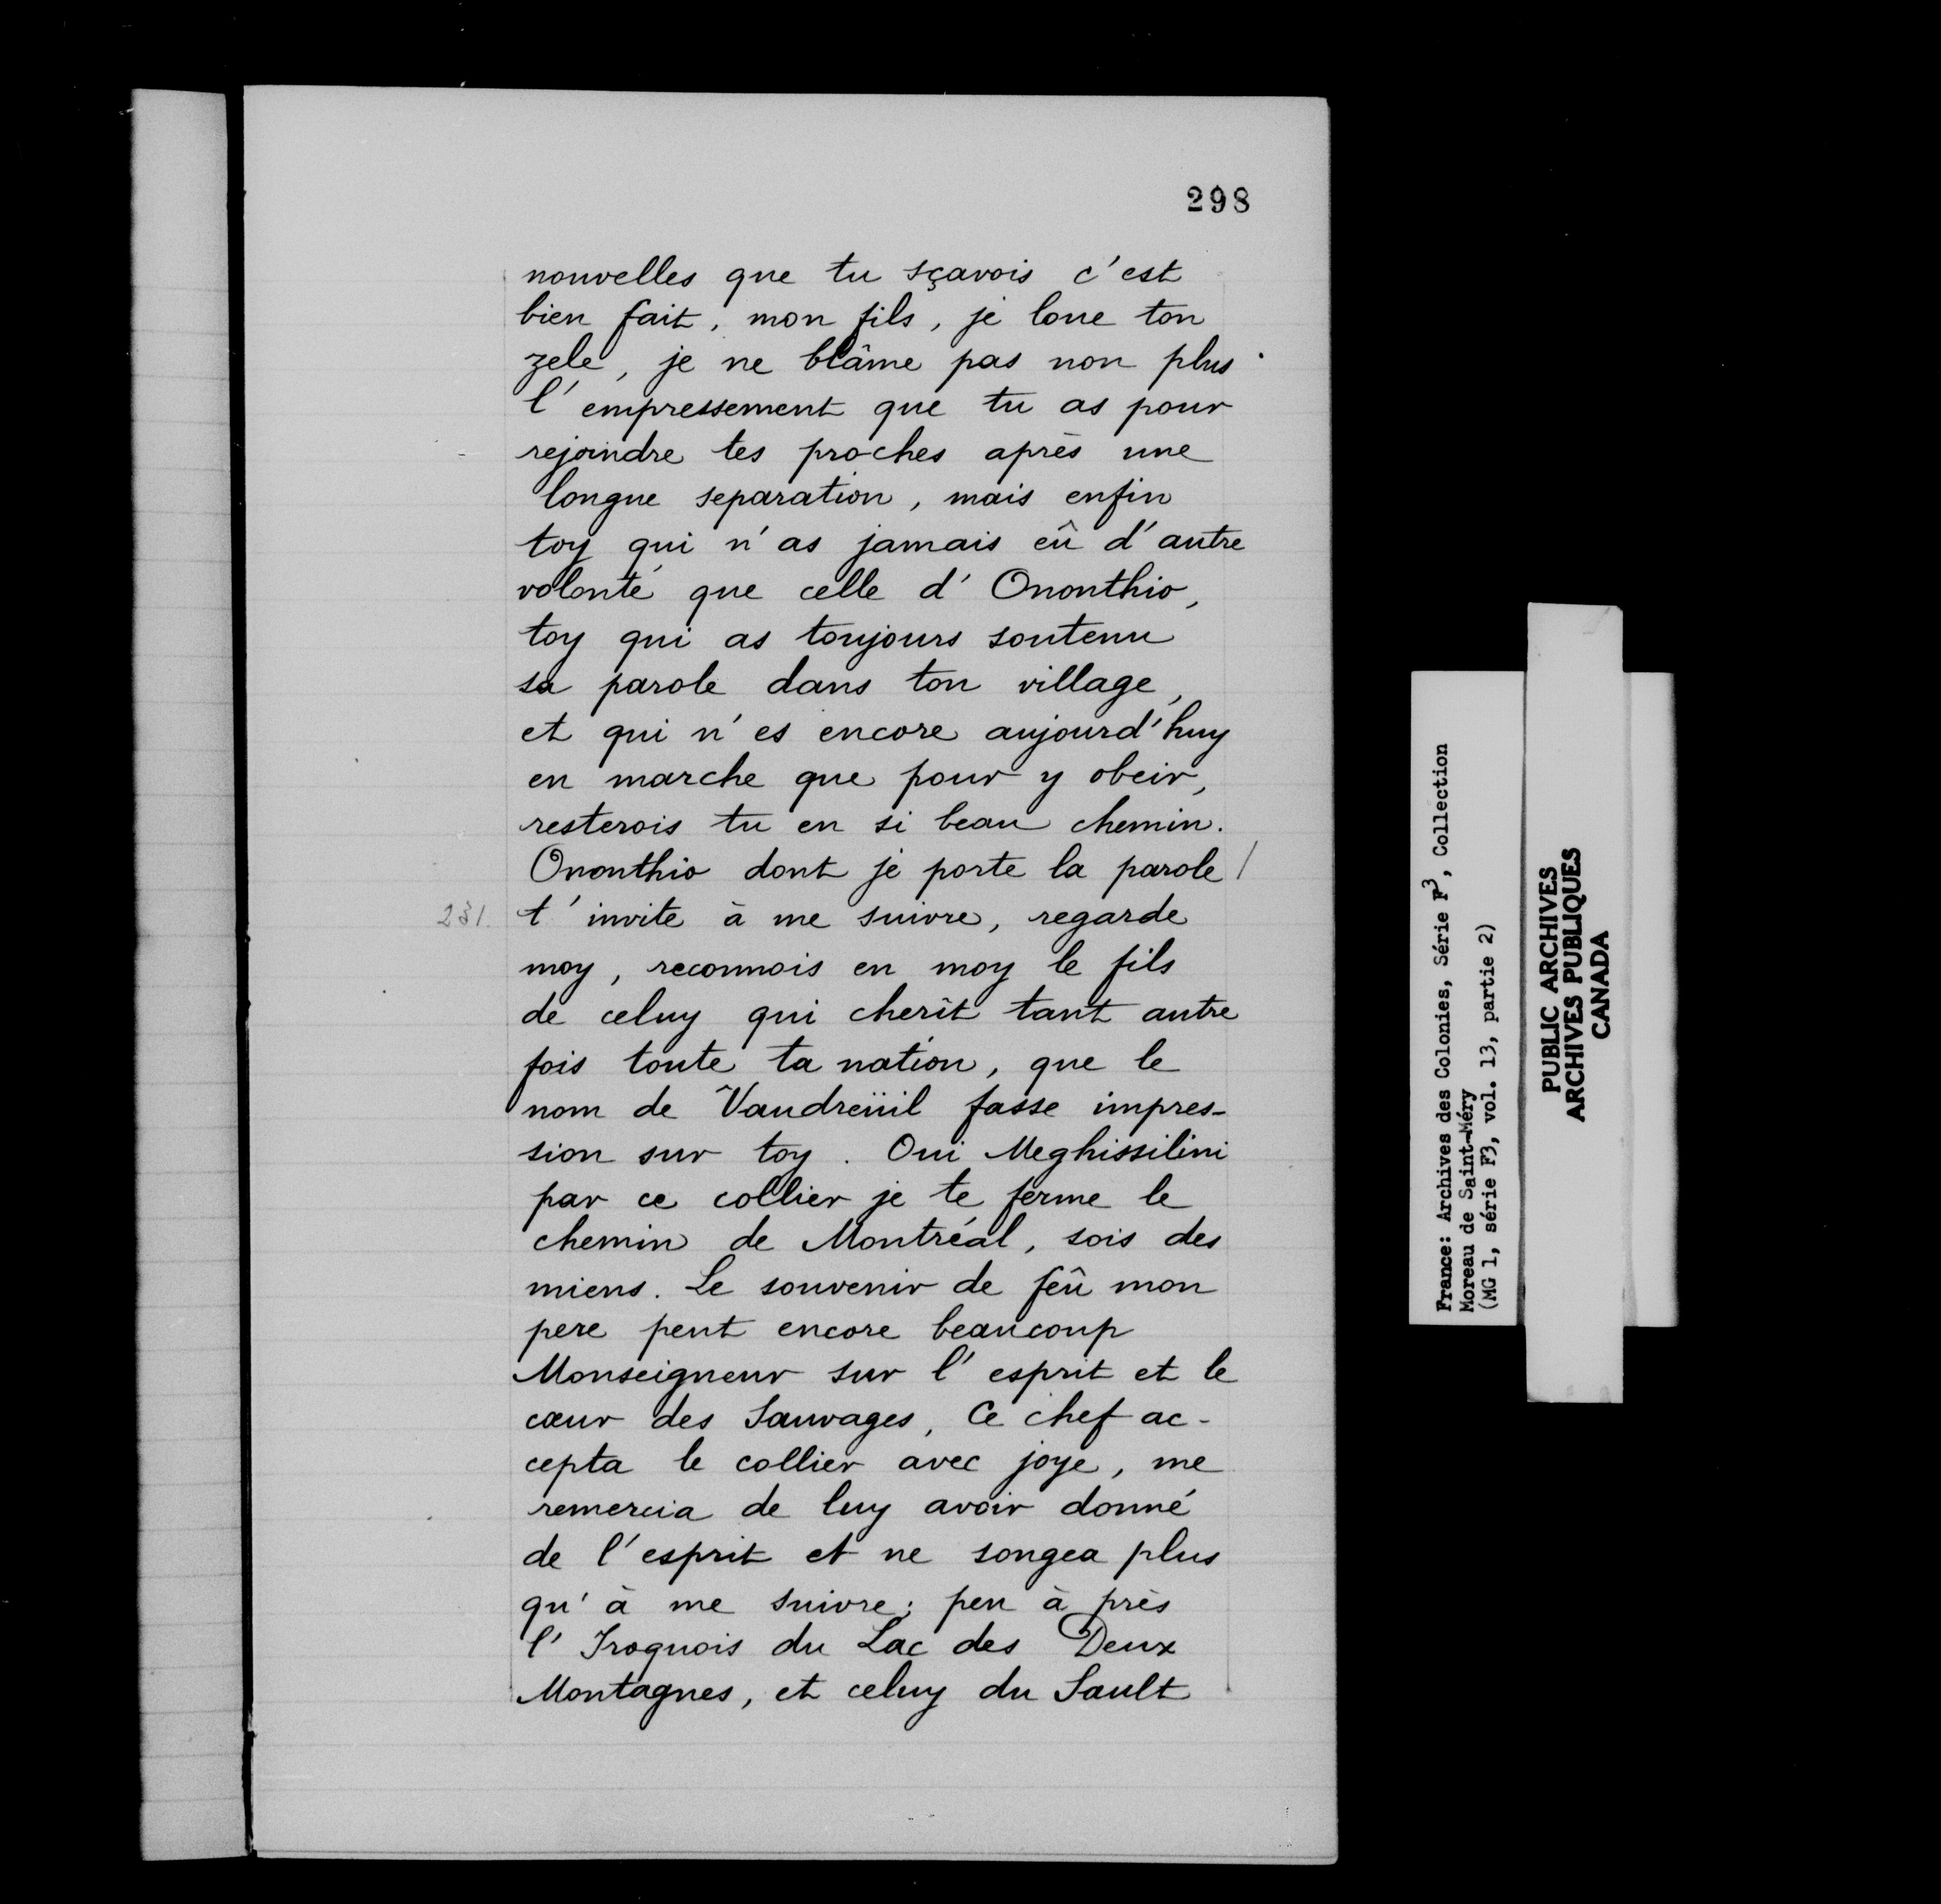 298
nouvelles que tu sçavois c'est
bien fait, mon fils, je loue ton
zele, je ne blâme pas non plus
l'empressement que tu as pour
rejoindre tes proches après une
longue separation, mais enfin
toy qui n'as jamais eû d'autre
volonté que celle d'Ononthio,
toy qui as toujours soutenu
sa parole dans ton village,
et qui n'es encore aujourd'huy
en marche que pour y obeir,
resterois tu en si beau chemin.
Ononthio dont je porte la parole /
231. t'invite à me suivre, regarde
moy, reconnois en moy le fils
de celuy qui cherît tant autre
fois toute ta nation, que le
nom de Vaudreüil fasse impres-
sion sur toy. Oui Meghissilini
par ce collier je te ferme le
chemin de Montréal, sois des
miens. Le souvenir de feû mon
pere peut encore beaucoup
Monseigneur sur l'esprit et le
cœur des Sauvages, Ce chef ac-
cepta le collier avec joye, me
remercia de luy avoir donné
de l'esprit et ne songea plus
qu'à me suivre; peu à près
l'Iroquois du Lac des Deux
Montagnes, et celuy du Sault
France: Archives des Colonies, Série F3, Collection
Moreau de Saint-Méry
(MG 1, série F3, vol. 13, partie 2)
PUBLIC ARCHIVES
ARCHIVES PUBLIQUES
CANADA